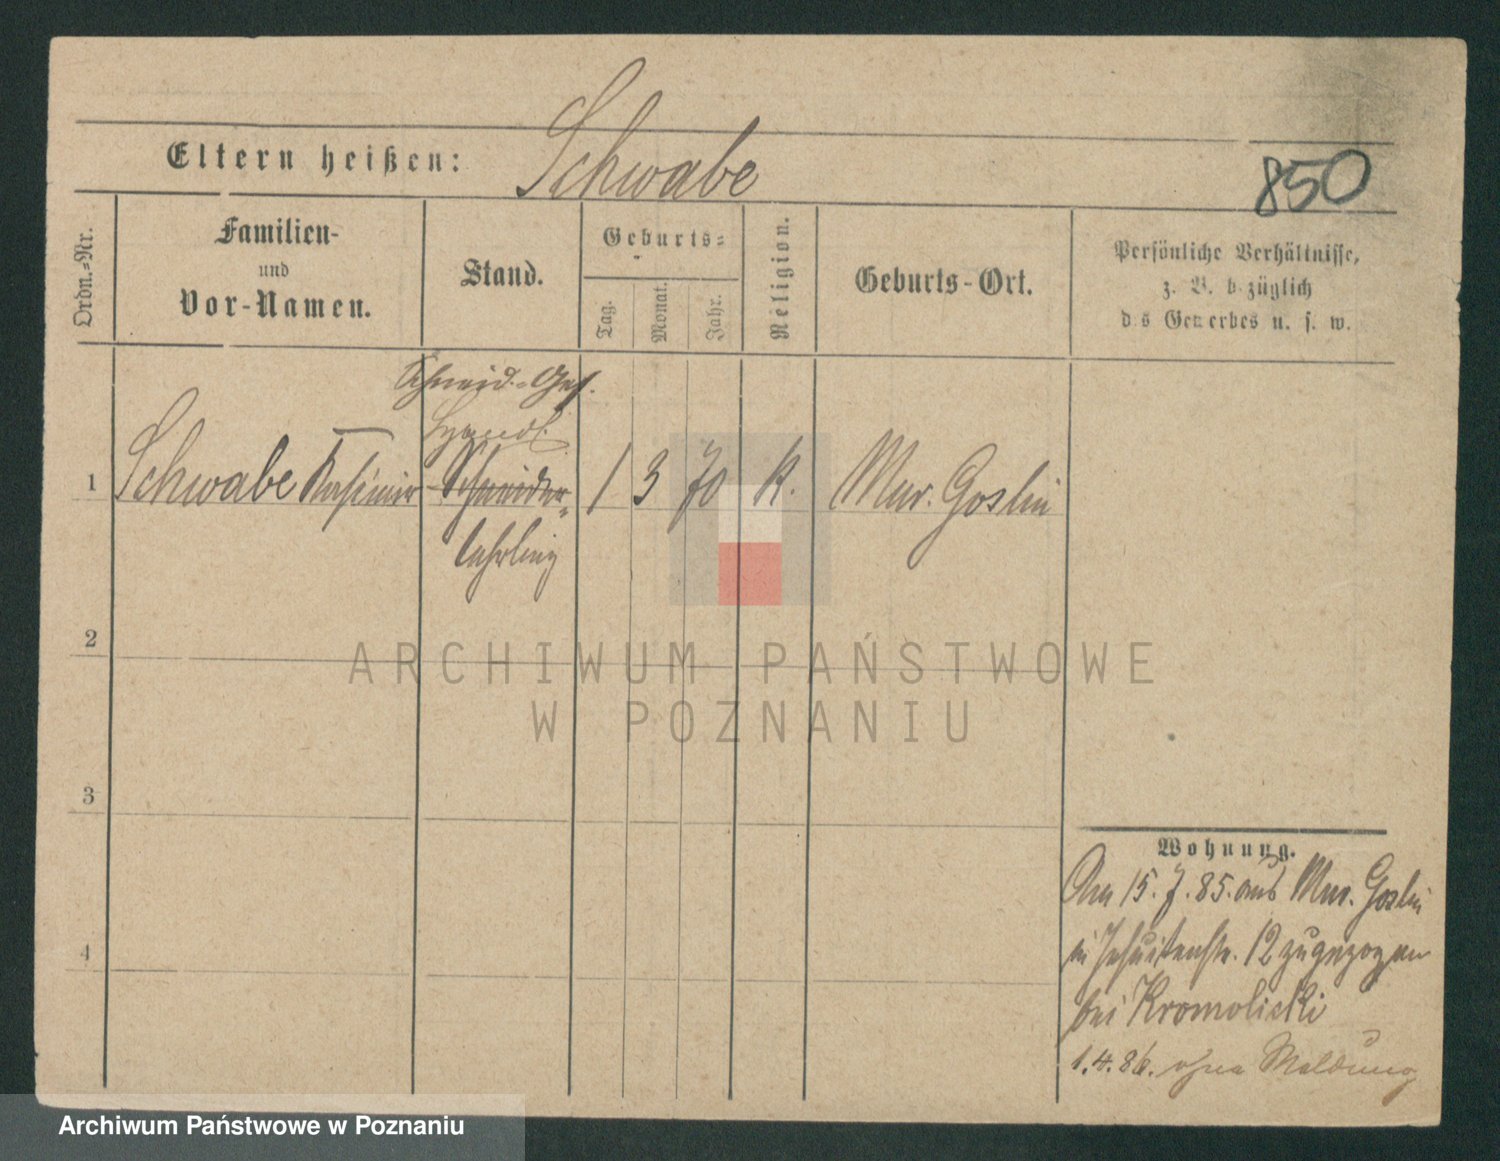 Schwabe
Eltern heißen:
850
Ordn.=Nr.
Familien-
und
Vor-Namen.
Stand.
Geburts=
Tag.
Monat.
Jahr.
Religion.
Geburts-Ort.
Persönliche Verhältnisse,
z. B. b züglich
d s Gewerbes u. s. w.
Schneid.=Ges.
1 Schwabe Kasimir Schneider= 1 3 70 K. Mur. Goslin
lehrling
2
3
4
Wohnung.
Am 15. 7. 85. aus Mur. Goslin
in Jesuitenstr. 12 zugezogen
bei Kromolicki
1.4.86. ohne Meldung
ARCHIWUM PAŃSTWOWE
W POZNANIU
Archiwum Państwowe w Poznaniu